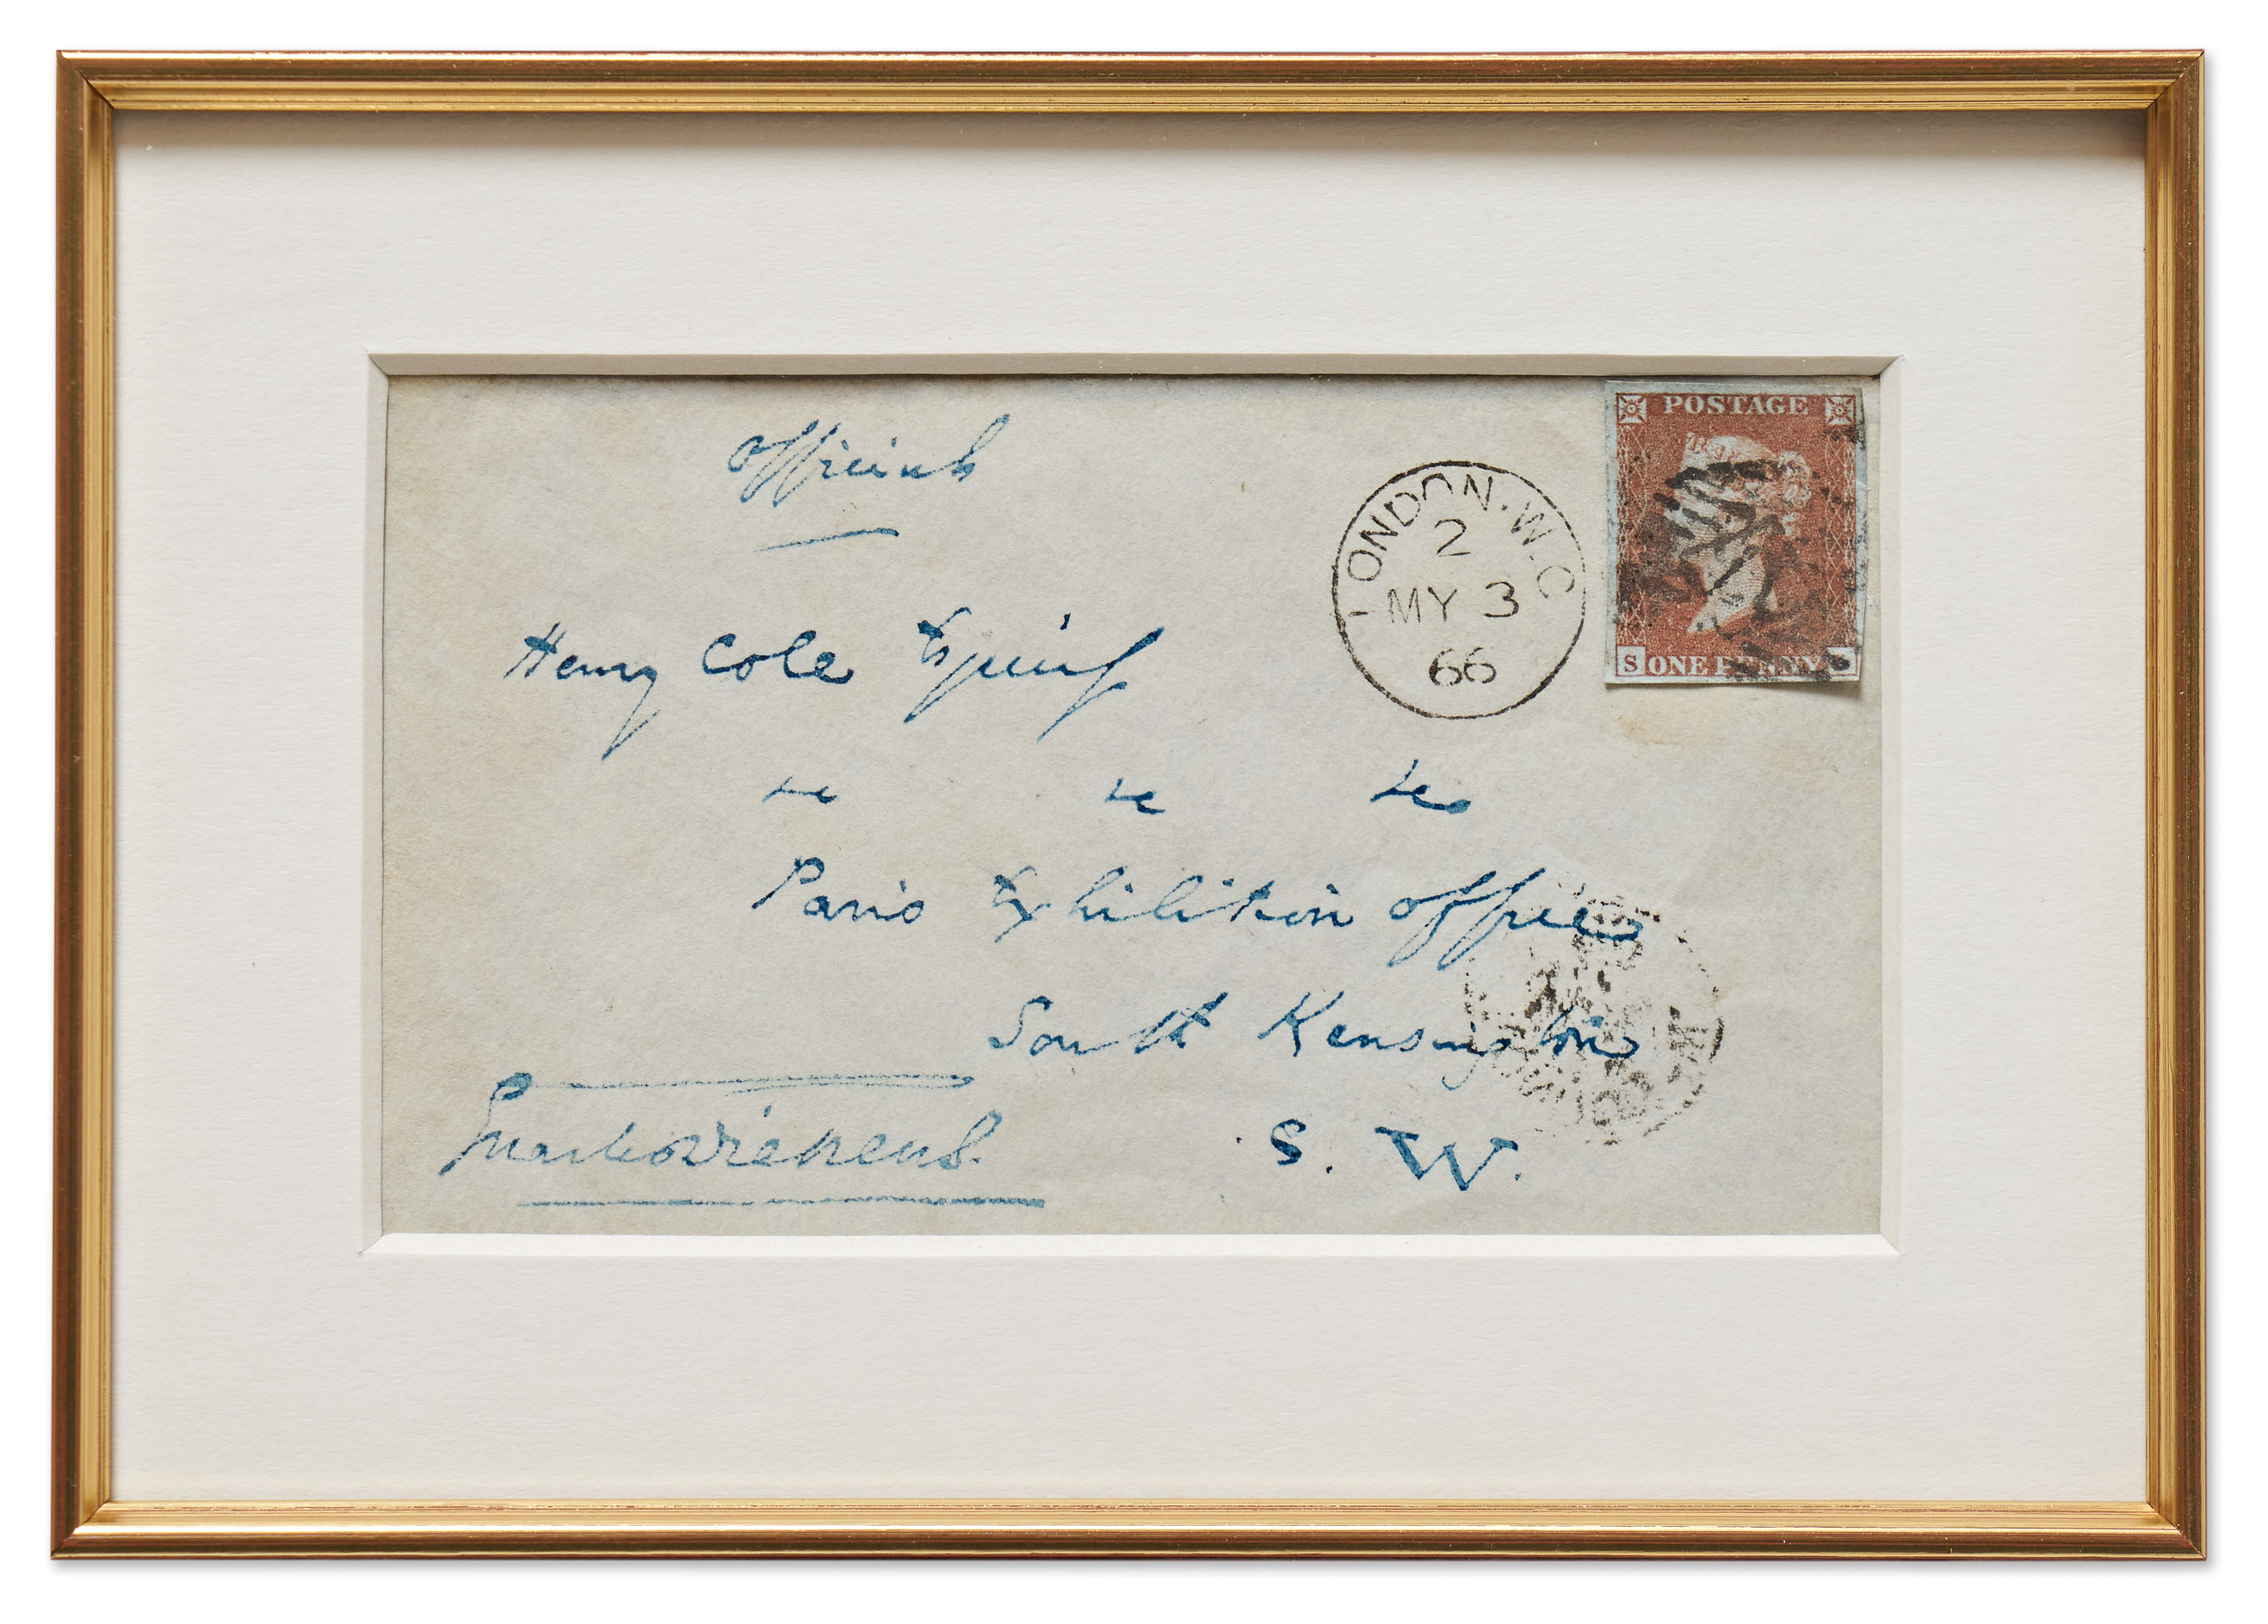 Official
Henry Cole Esquire
&c &c &c
Paris Exhibition Office
South Kensington
S. W.
Charles Dickens.
LONDON.W.C
2
MY 3
66
POSTAGE
S ONE PENNY